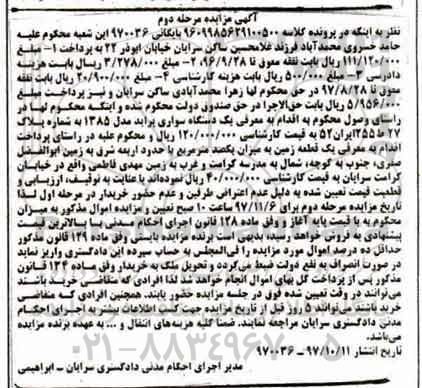 آگهی مزایده مرحله دوم
نظر به اینکه در پرونده کلاسه ۹۶۰۹۹۸۵۶۲۹۱۰۰۵۰۰ بایگانی ۹۷۰۰۳۶ این شعبه محکوم علیه
حامد خسروی محمدآباد فرزند غلامحسین ساکن سرایان خیابان ابوذر ۲۲ به پرداخت ۱- مبلغ
۱۱۱/۱۲۰/۰۰۰ ریال بابت نفقه معوق تا ۹۶/۹/۲۸، ۲- مبلغ ۳/۲۷۸/۰۰۰ ریسال بابت هزینه
دادرسی ۳- مبلغ ۵۰۰/۰۰۰ ریال بابت هزینه کارشناسی ۴- مبلغ ۲۰/۹۰۰/۰۰۰ ریال بابت نفقه
معوق تا ۹۷/۸/۲۸ در حق محکوم لها زهرا محمدآبادی ساکن سرایان و نیز پرداخت
۵/۹۵۶/۰۰۰ ریال بابت حق‌الاجرا در حق صندوق دولت محکوم شده و اینکه محکوم لها در
راستای وصول محکوم به اقدام به معرفی یک دستگاه سواری پراید مدل ۱۳۸۵ به شماره پلاک
۲۷ ط ۲۵۵ ایران ۵۲ به قیمت کارشناسی ۱۲۰/۰۰۰/۰۰۰ ریال و محکوم علیه در راستای پرداخت
اقدام به معرفی یک قطعه زمین به میزان یکصد مترمربع با حدود اربعه شرق به زمین ابوالفضل
صفری، جنوب به کوچه، شمال به مدرسه کرامت و غرب به زمین مهدی فاطمی واقع در خیابان
کرامت سرایان به قیمت کارشناسی ۴۰/۰۰۰/۰۰۰ ریال نموده‌اند با عنایت به توقیف، ارزیابی و
قطعیت قیمت تعیین شده به دلیل عدم اعتراض طرفین و عدم حضور خریدار در مرحله اول لذا
تاریخ مزایده مرحله دوم برای ۹۷/۱۱/۶ ساعت ۱۰ صبح تعیین و مزایده اموال مذکور به میزان
محکوم به با قیمت پایه آغاز و وفق ماده ۱۲۸ قانون اجرای احکام مدنی به بالاترین قیمت
پیشنهادی به فروش خواهد رسید، بدیهی است برنده مزایده بایستی وفق ماده ۱۲۹ قانون مذکور
حداقل ده درصد اموال مورد مزایده را فی‌المجلس به حساب سپرده این دادگستری واریز نماید
در صورت انصراف به نفع دولت ضبط می‌گردد و تحویل ملک به خریدار وفق ماده قانون
مذکور پس از پرداخت کل بهای اموال انجام خواهد شد لذا افرادی که متقاضی خرید باشند
می‌توانند در وقت تعیین شده فوق در جلسه مزایده حضور یابند. همچنین افرادی که متقاضی
خرید باشند می‌توانند ۵ روز قبل از تاریخ مزایده جهت کسب اطلاعات بیشتر به اجرای احکام
مدنی دادگستری سرایان مراجعه نمایند. ضمنا کلیه هزینه‌های انتقال و ... به عهده برنده مزایده
می‌باشد.
تاریخ انتشار ۹۷/۱۰/۱۱ – ۹۷۰۰۳۶
مدیر اجرای احکام مدنی دادگستری سرایان - ابراهیمی
۰۲۱-۸۸۳۴۹۶۷۰-۵